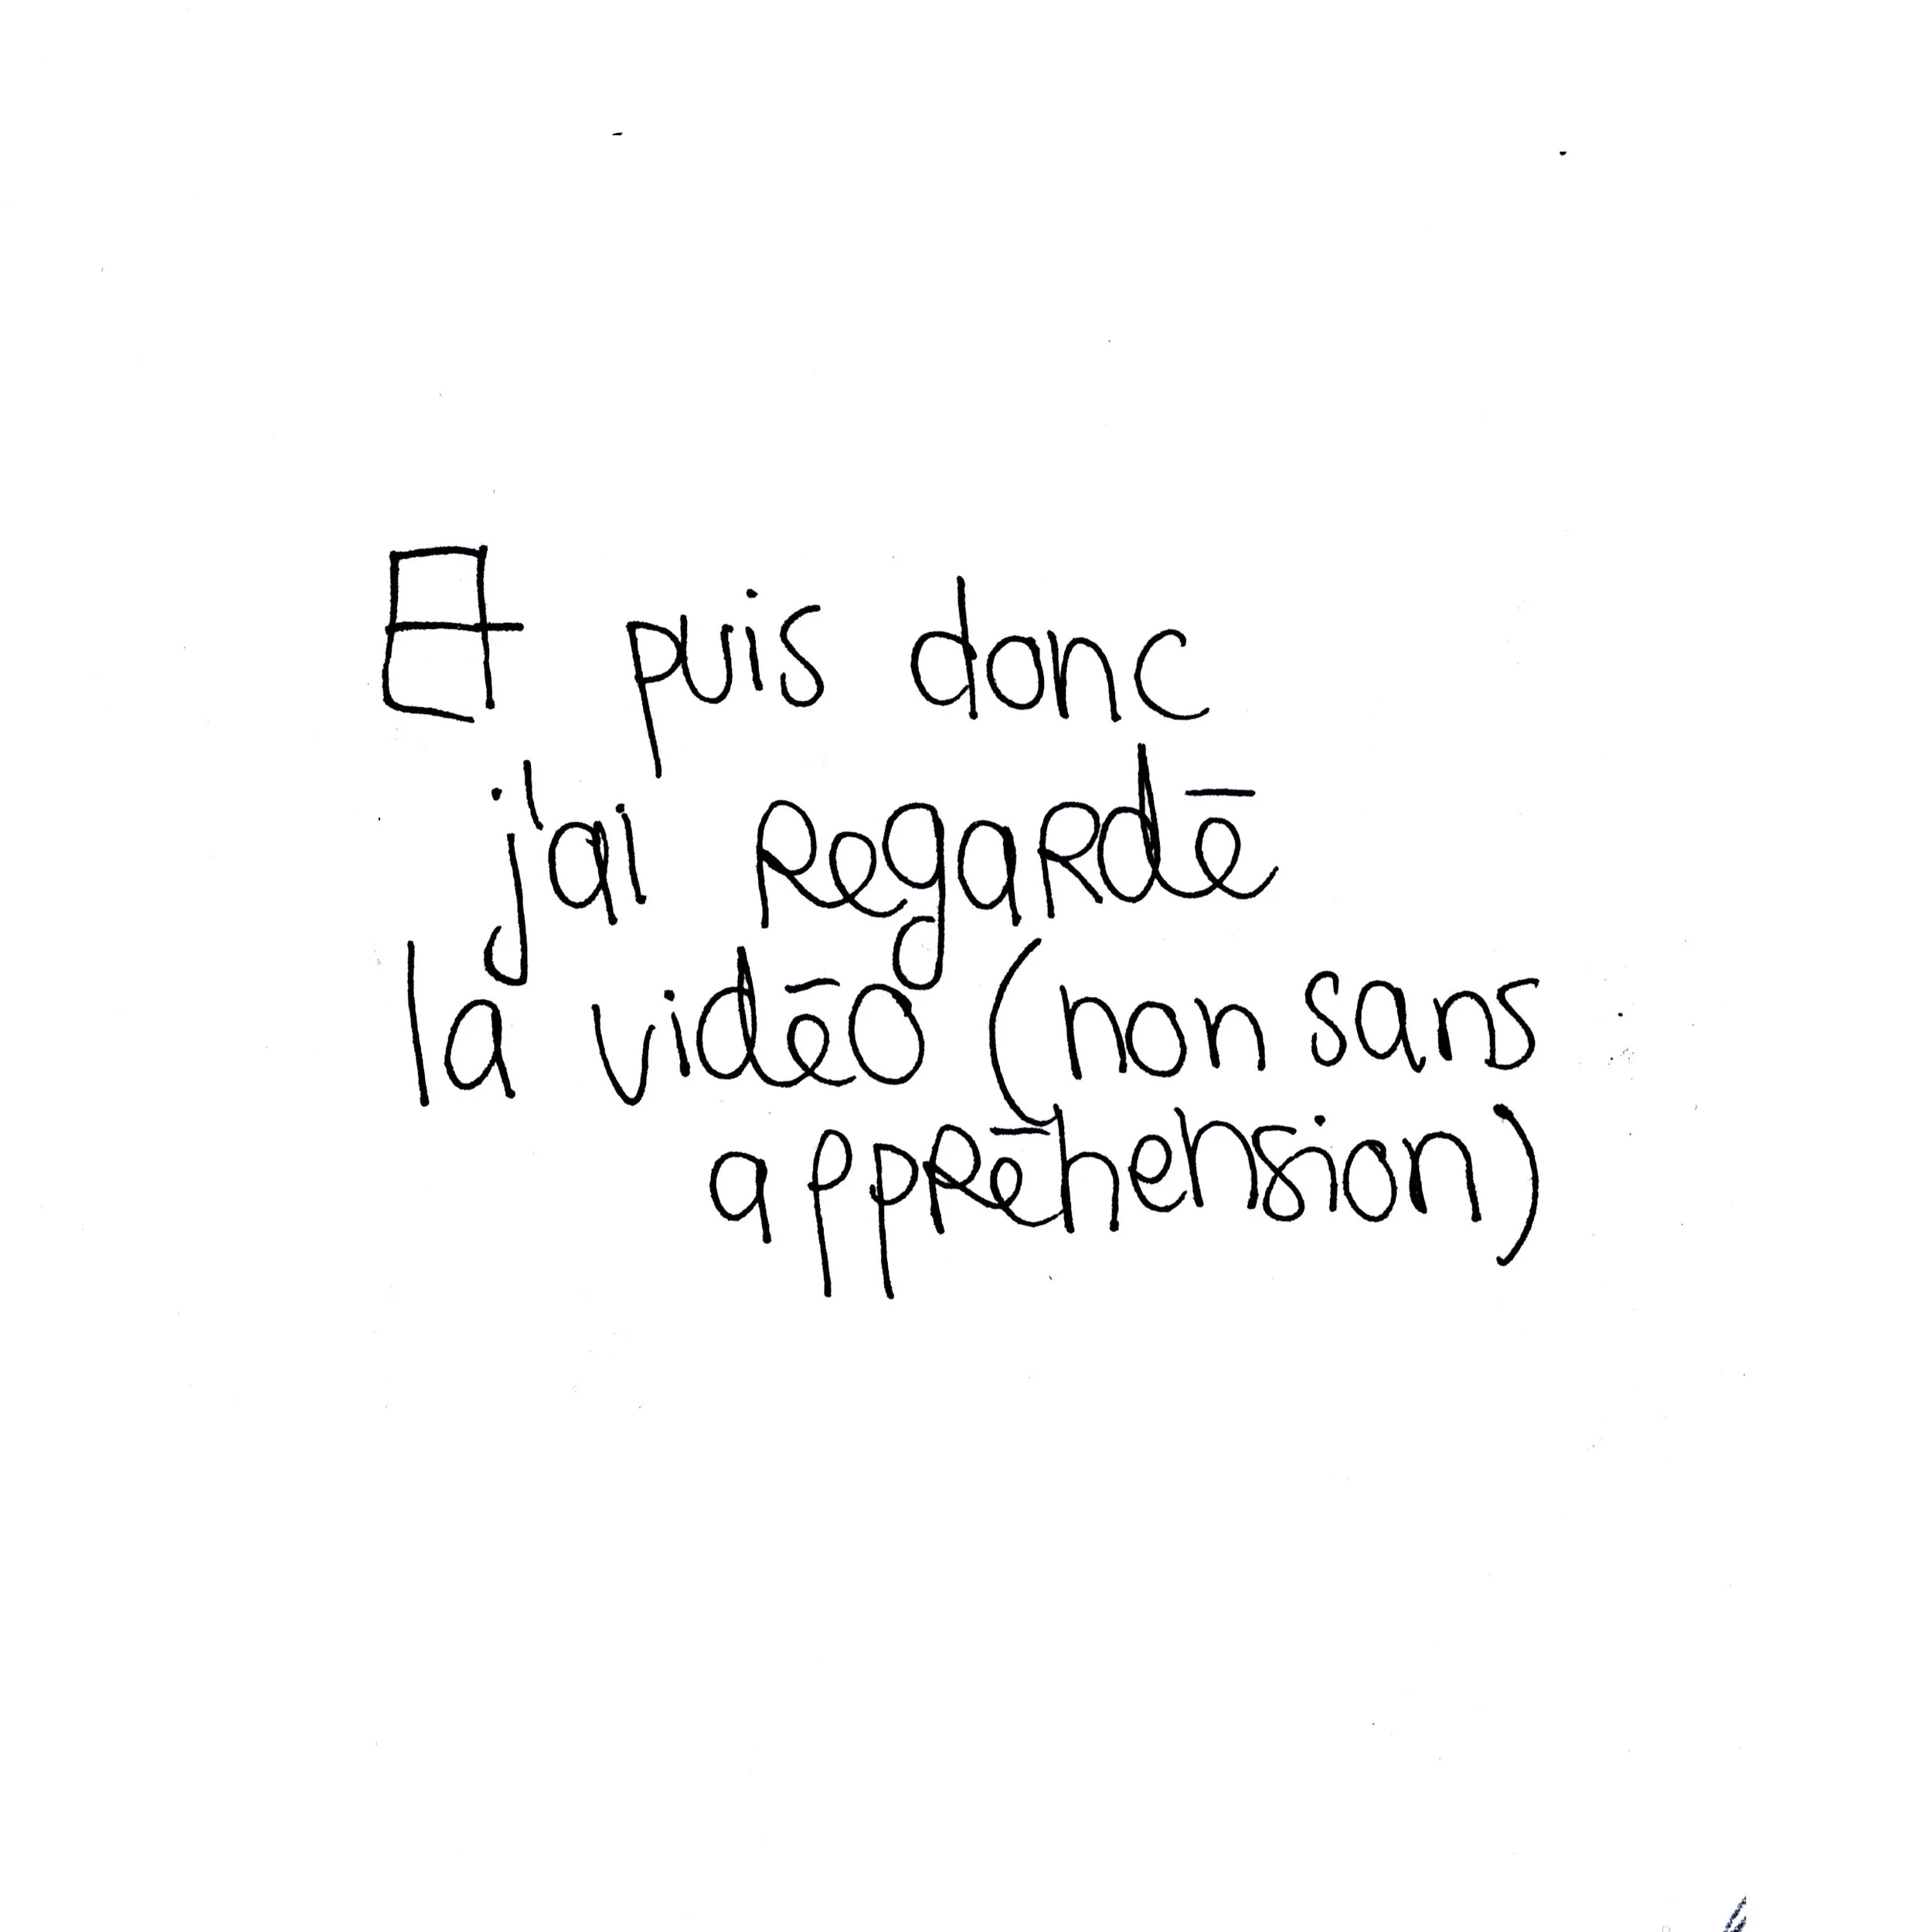 Et puis donc
j'ai regardé
la vidéo (non sans
appréhension)